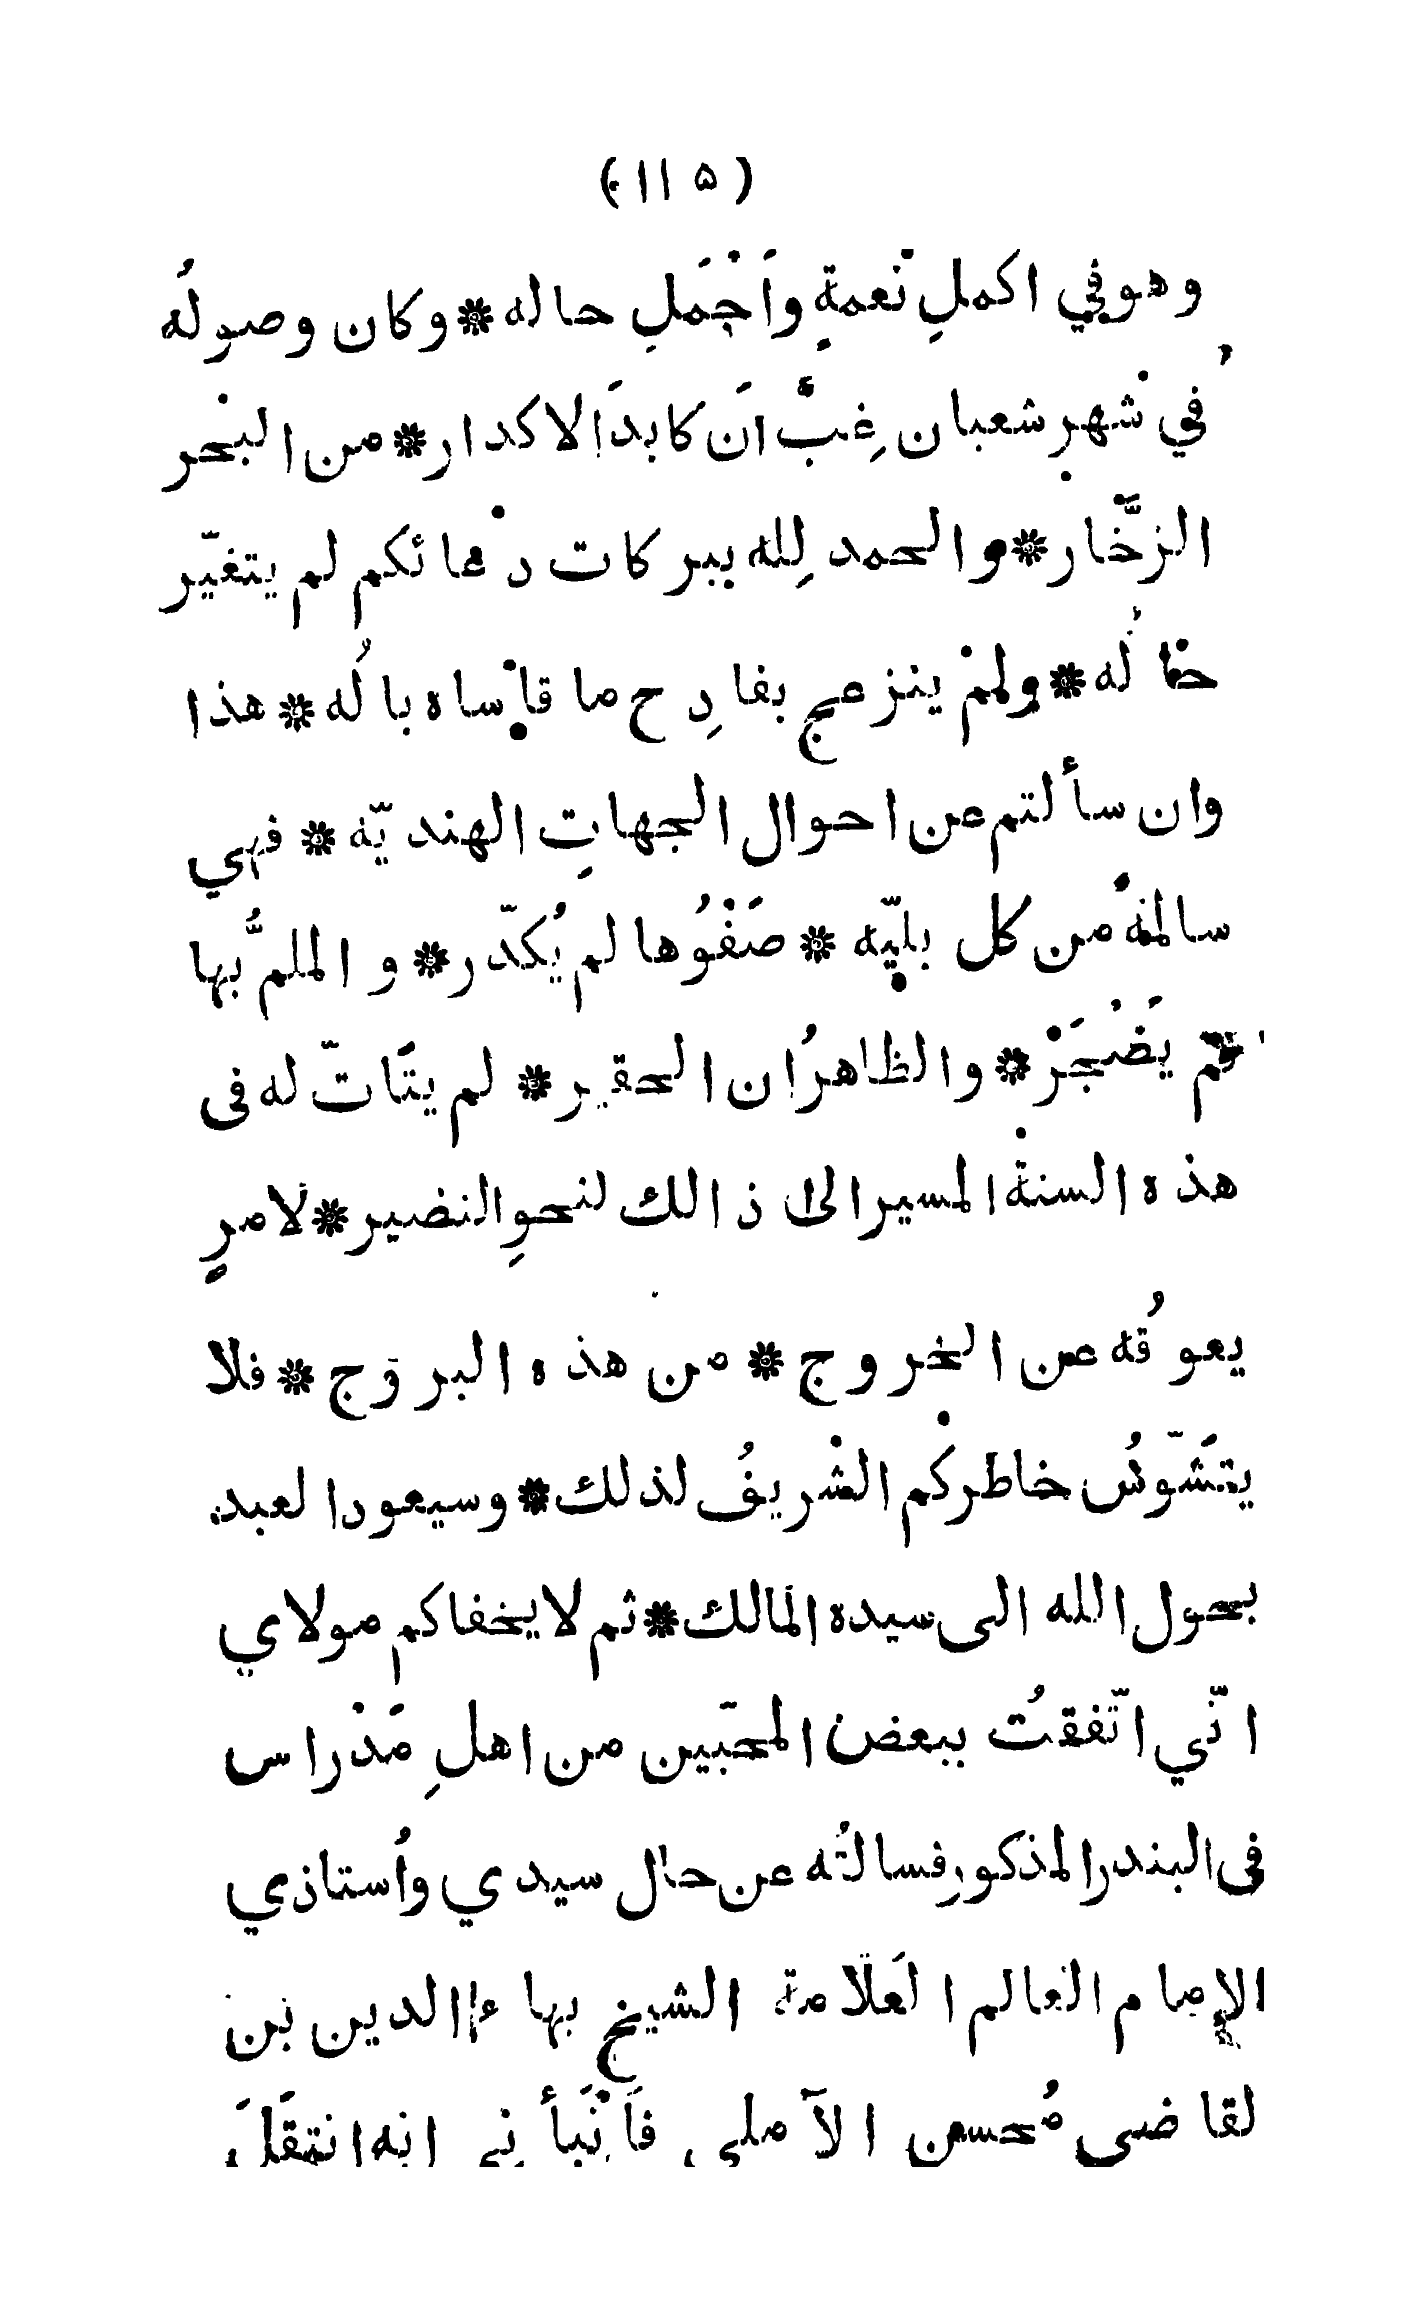 (١١۵)
وهو في اكملِ نعمةٍ واَجْمَلِ حاله * وكان وصولُه
في شهرِ شعبان غِبَّ اَن كابدَ الاكدار * من البحر
الزخّار * والحمد لِله ببركات دعائكم لم يتغيّر
حالُه * ولم ينزعج بفادِح ما قاساه بالُه * هذا
وان سألتم عن احوال الجهاتِ الهنديّه * فهي
سالمةٌ من كل بليّه * صَفْوُها لم يُكدّر * و الملمُّ بها
لم يَضْجَرْ * والظاهرُ ان الحقير * لم يتَاتّ له فى
هذه السنة المسير الى ذالك لنحوِ النضير * لامرٍ
يعوقُه عن الخروج * من هذه البروج * فلا
يتشَوّشُ خاطركم الشريفُ لذلك * وسيعود العبد
بحول الله الى سيده المالك * ثم لا يخفاكم مولاي
انّي اتّفقتُ ببعض المحبّين من اهلِ مَدْراس
فى البندر المذكورِ فسالتُه عن حال سيدي واُستاذي
الإمام العالم العَلّامة الشيخ بهاء الدين بن
لقاضي مُحسن الآملي فاَنْبَأَنِي انه انتقَلَ